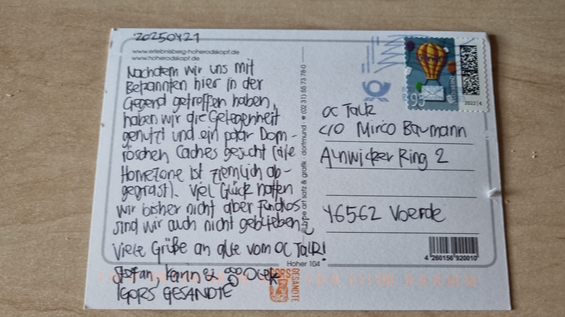 20250421
www.erlebnisberg-hoherodskopf.de
www.hoherodskopf.de
Nachdem wir uns mit
Bekannten hier in der
Gegend getroffen haben,
haben wir die Gelegenheit
genutzt und ein paar Dorn-
röschen Caches gesucht (die
Homezone ist ziemlich ab-
gegrast). Viel Glück hatten
wir bisher nicht aber Fundlos
sind wir auch nicht geblieben
Viele Grüße an alle vom OC Talk!
IGORS GESANDTE
Hoher 104
IGORS
GESANDTE
art satz & grafik · dortmund
95
OC Talk
c/o Mirco Baumann
Alnwicker Ring 2
46562 Voerde
4 260156 920010